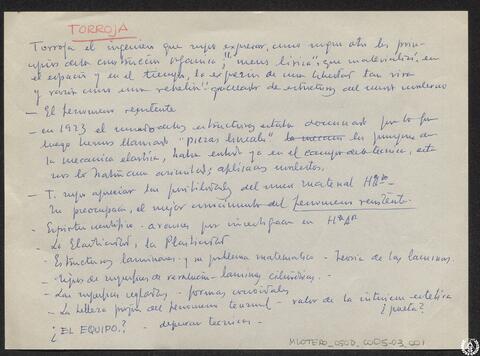 TORROJA
Torroja el ingeniero que supo expresar, como ningun otro los prin-
cipios de la construccion organica, "mens lirica", que materializó, en
el espacio y en el tiempo, la expresion de una libertad tan viva
y varia como una rebelión creador de estructuras del mundo moderno
— El fenomeno resistente
— en 1923 el mundo de las estructuras estaba dominado por lo que
luego hemos llamado "piezas lineales" la mecanica los principios de
la mecanica elastica, habia entrado ya en el campo de la tecnica, esta
nos lo habiamos
— T. supo apreciar las posibilidades del nuevo material Hºº
Su preocupacion, el mejor conocimiento del fenomeno resistente.
— Espiritu cientifico - avances por investigacion en HºAº
— La Elasticidad, la Plasticidad
— Estructuras laminares - y su problema matematico - Teoria de las laminas.
— Tipos de superficies de revolucion - laminas cilindricas. -
— Las superficies regladas - formas conoidales
— La belleza propia del fenomeno tensional - valor de la intuicion estetica
¿poeta?
¿EL EQUIPO? - depurar tecnicos -
MLOTERO_OSOD_CO05-03_001